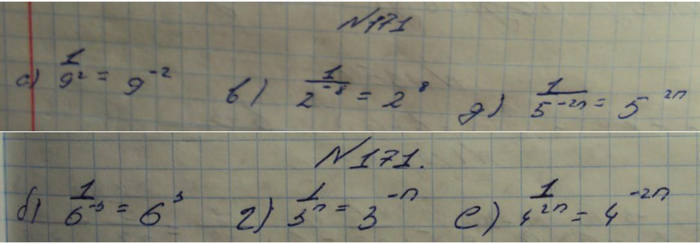 N171
а) 1/9² = 9⁻² в) 1/2⁻⁸ = 2⁸ д) 1/5⁻²ⁿ = 5²ⁿ
N171.
б) 1/6⁻³ = 6³ г) 1/3ⁿ = 3⁻ⁿ е) 1/4²ⁿ = 4⁻²ⁿ